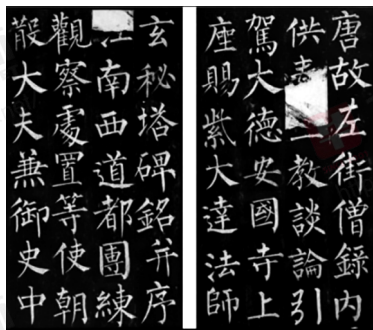 唐故左街僧錄內
供教談論引
駕大德安國寺上
座賜紫大達法師
玄秘塔碑銘并序
江南西道都團練
觀察處置等使朝
散大夫兼御史中